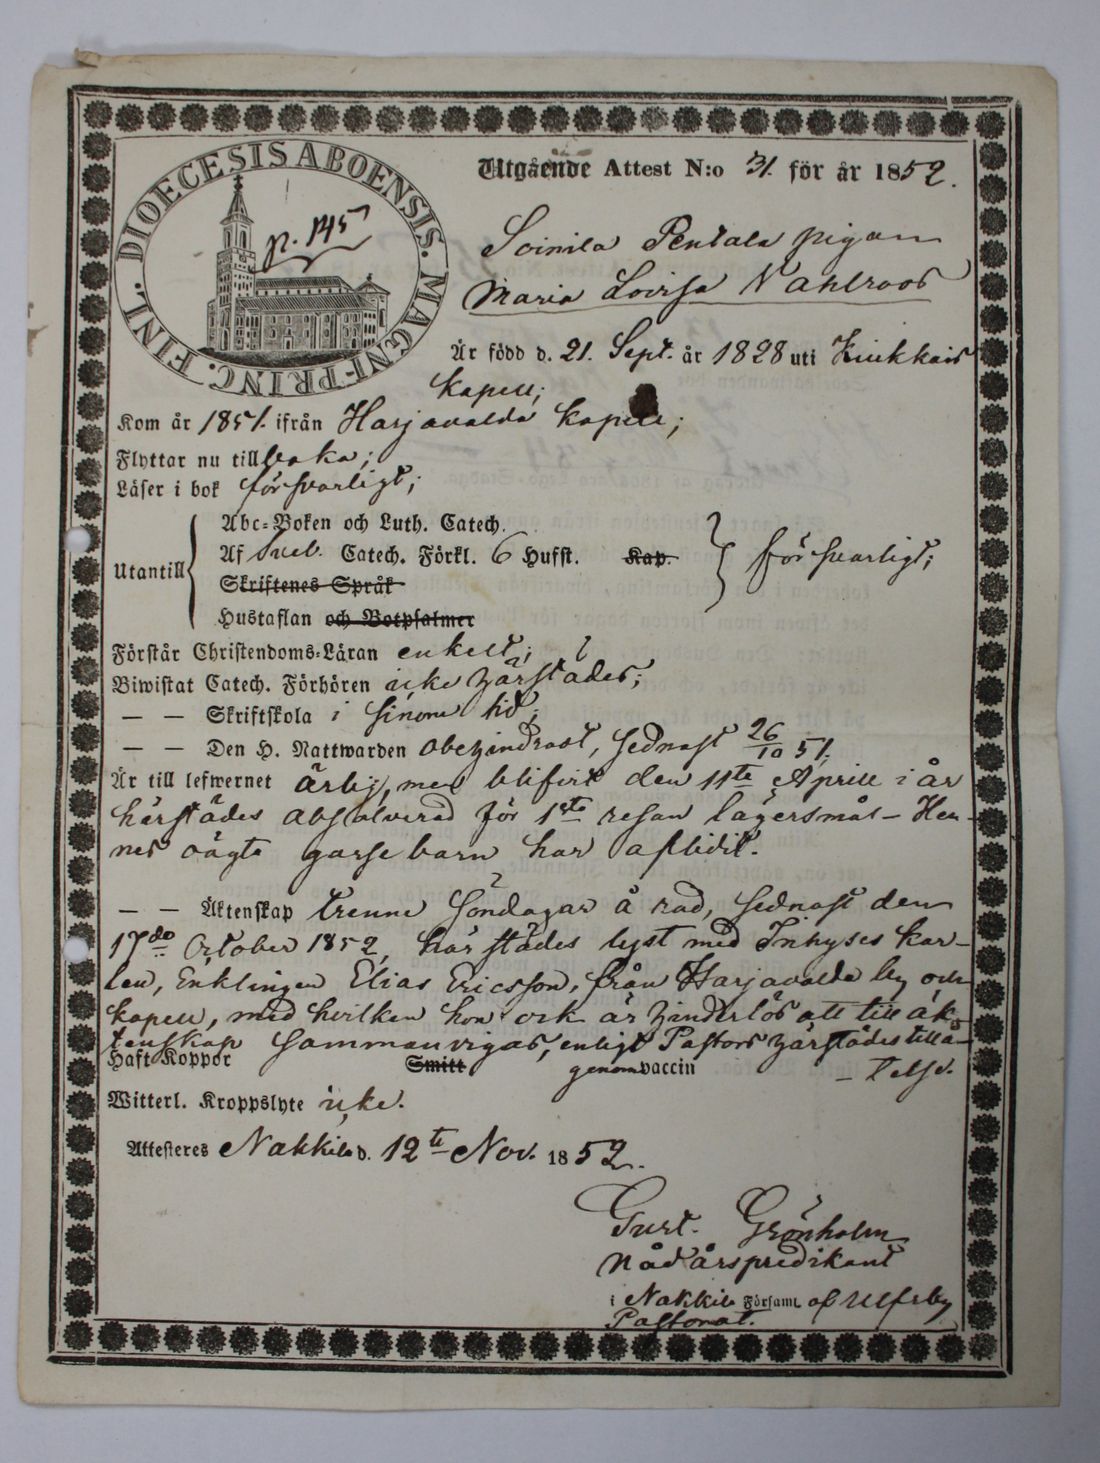 DIOECESIS ABOENSIS. MAGNI PRINC. FINL.
p. 145
Utgående Attest N:o 31. för år 1852.
Soinila Pentala pigan
Maria Lovisa Wahlroos
Är född d. 21. Sept. år 1828 uti Kiukkais
kapell;
Kom år 1851. ifrån Harjavalda kapell;
Flyttar nu tillbaka;
Läser i bok försvarligt;
Utantill
Abc-Boken och Luth. Catech.
Af Sveb. Catech. Förkl. 6 Hufst. Kap. försvarligt;
Skriftenes Språk
Hustaflan och Botpsalmer
Förstår Christendoms-Läran enkelt;
Biwistat Catech. Förhören icke härstädes;
— — Skriftskola i sinom tid;
— — Den H. Nattwarden obehindrast, sednast 26/10 51;
Är till lefwernet ärlig, men blifvit den 11te Aprill i år
härstädes absolverad för 1sta resan lägersmål – Hen-
nes oägta gossebarn har aflidit.
— — Äktenskap trenne söndagar å rad, sednast den
17de October 1852, härstädes lyst med Inhyses kar-
len, Enklingen Elias Ericsson, från Harjavalda by och
kapell, med hvilken hon ock är hinderlös att till äk-
tenskap sammanvigas, enligt Pastors härstädes tillå-
Haft Koppor Smitt genom vaccin – telse.
Witterl. Kroppslyte icke.
Attesteres Nakkila d. 12te Nov. 1852.
Gust. Grönholm
Nådårspredikant
i Nakkila Församl. af Ulfsby
Pastorat.